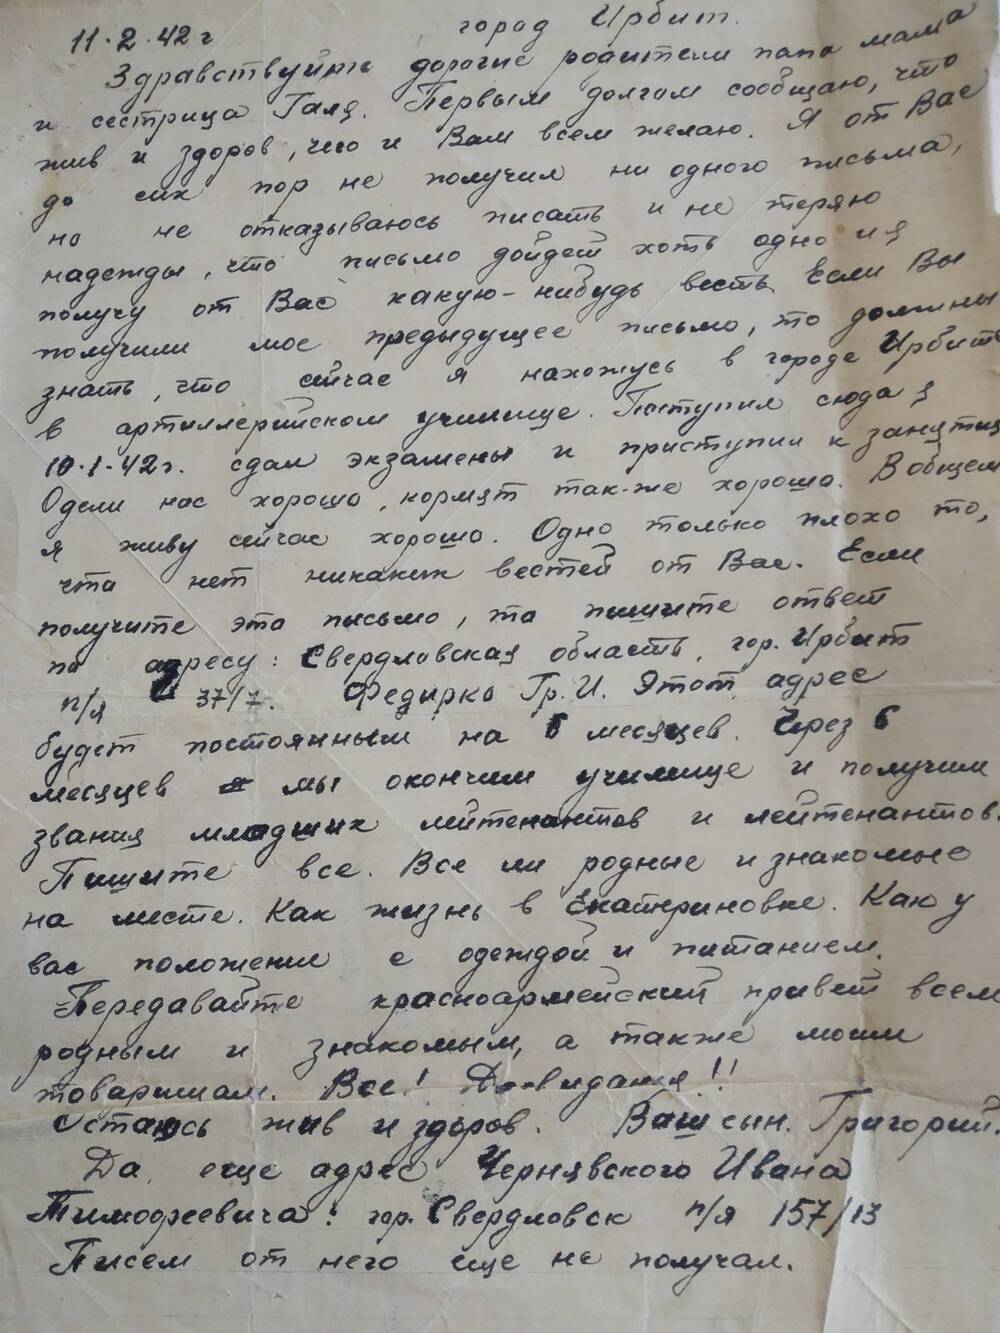 11·2·42г город Ирбит.
Здравствуйте дорогие родители папа мама
и сестрица Галя. Первым долгом сообщаю, что
жив и здоров, чего и Вам всем желаю. Я от Вас
до сих пор не получил ни одного письма,
но не отказываюсь писать и не теряю
надежды, что письмо дойдет хоть одно и я
получу от Вас какую-нибудь весть. Если Вы
получили мое предыдущее письмо, то должны
знать, что сейчас я нахожусь в городе Ирбите
в артиллерийском училище. Поступил сюда я
10·1·42г. сдал экзамены и приступил к занятиям
Одели нас хорошо, кормят так-же хорошо. В общем
я живу сейчас хорошо. Одно только плохо то,
что нет никаких вестей от Вас. Если
получите это письмо, то пишите ответ
по адресу: Свердловская область, гор. Ирбит
п/я 37/7. Федирко Гр. И. Этот адрес
будет постоянным на 6 месяцев. Через 6
месяцев мы окончим училище и получим
звания младших лейтенантов и лейтенантов.
Пишите все. Все ли родные и знакомые
на месте. Как жизнь в Екатериновке. Как у
вас положение с одеждой и питанием.
Передавайте красноармейский привет всем
родным и знакомым, а также моим
товарищам. Все! До-видания!!
Остаюсь жив и здоров. Ваш сын. Григорий.
Да, еще адрес Чернявского Ивана
Тимофеевича: гор. Свердловск п/я 157/13
Писем от него еще не получал.